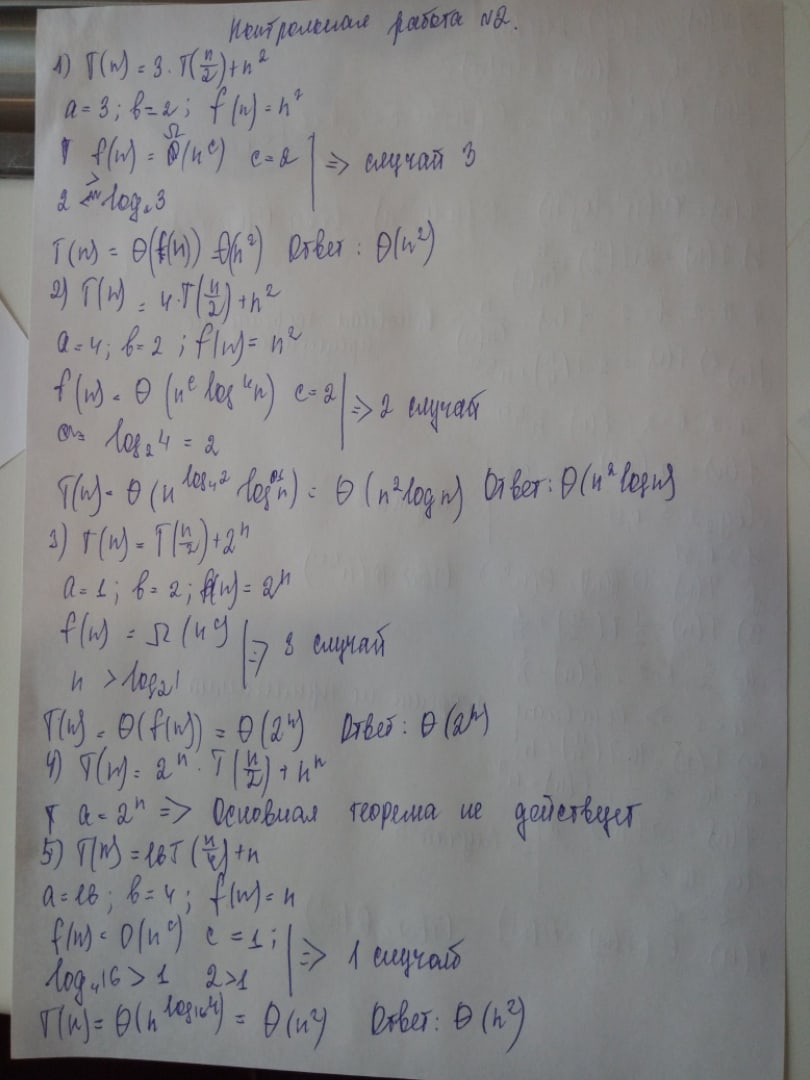 Контрольная работа №2.
1) T(n) = 3·T(n/2)+n²
a=3; b=2; f(n)=n²
f(n) = Ω(n^c) c=2 => случай 3
2 > log₂3
T(n) = Θ(f(n)) = Θ(n²) Ответ: Θ(n²)
2) T(n) = 4·T(n/2)+n²
a=4; b=2; f(n)=n²
f(n) = Θ(n^c log^k n) c=2 => 2 случай
log₂4 = 2
T(n) = Θ(n^log₄2 log n) = Θ(n² log n) Ответ: Θ(n² log n)
3) T(n) = T(n/2)+2ⁿ
a=1; b=2; f(n)=2ⁿ
f(n) = Ω(n^c) => 3 случай
n > log₂1
T(n) = Θ(f(n)) = Θ(2ⁿ) Ответ: Θ(2ⁿ)
4) T(n) = 2ⁿ·T(n/2)+nⁿ
a=2ⁿ => Основная теорема не действует
5) T(n)=16T(n/4)+n
a=16; b=4; f(n)=n
f(n) = O(n^c) c=1; => 1 случай
log₄16 > 1 2>1
T(n) = Θ(n^log₁₆4) = Θ(n²) Ответ: Θ(n²)